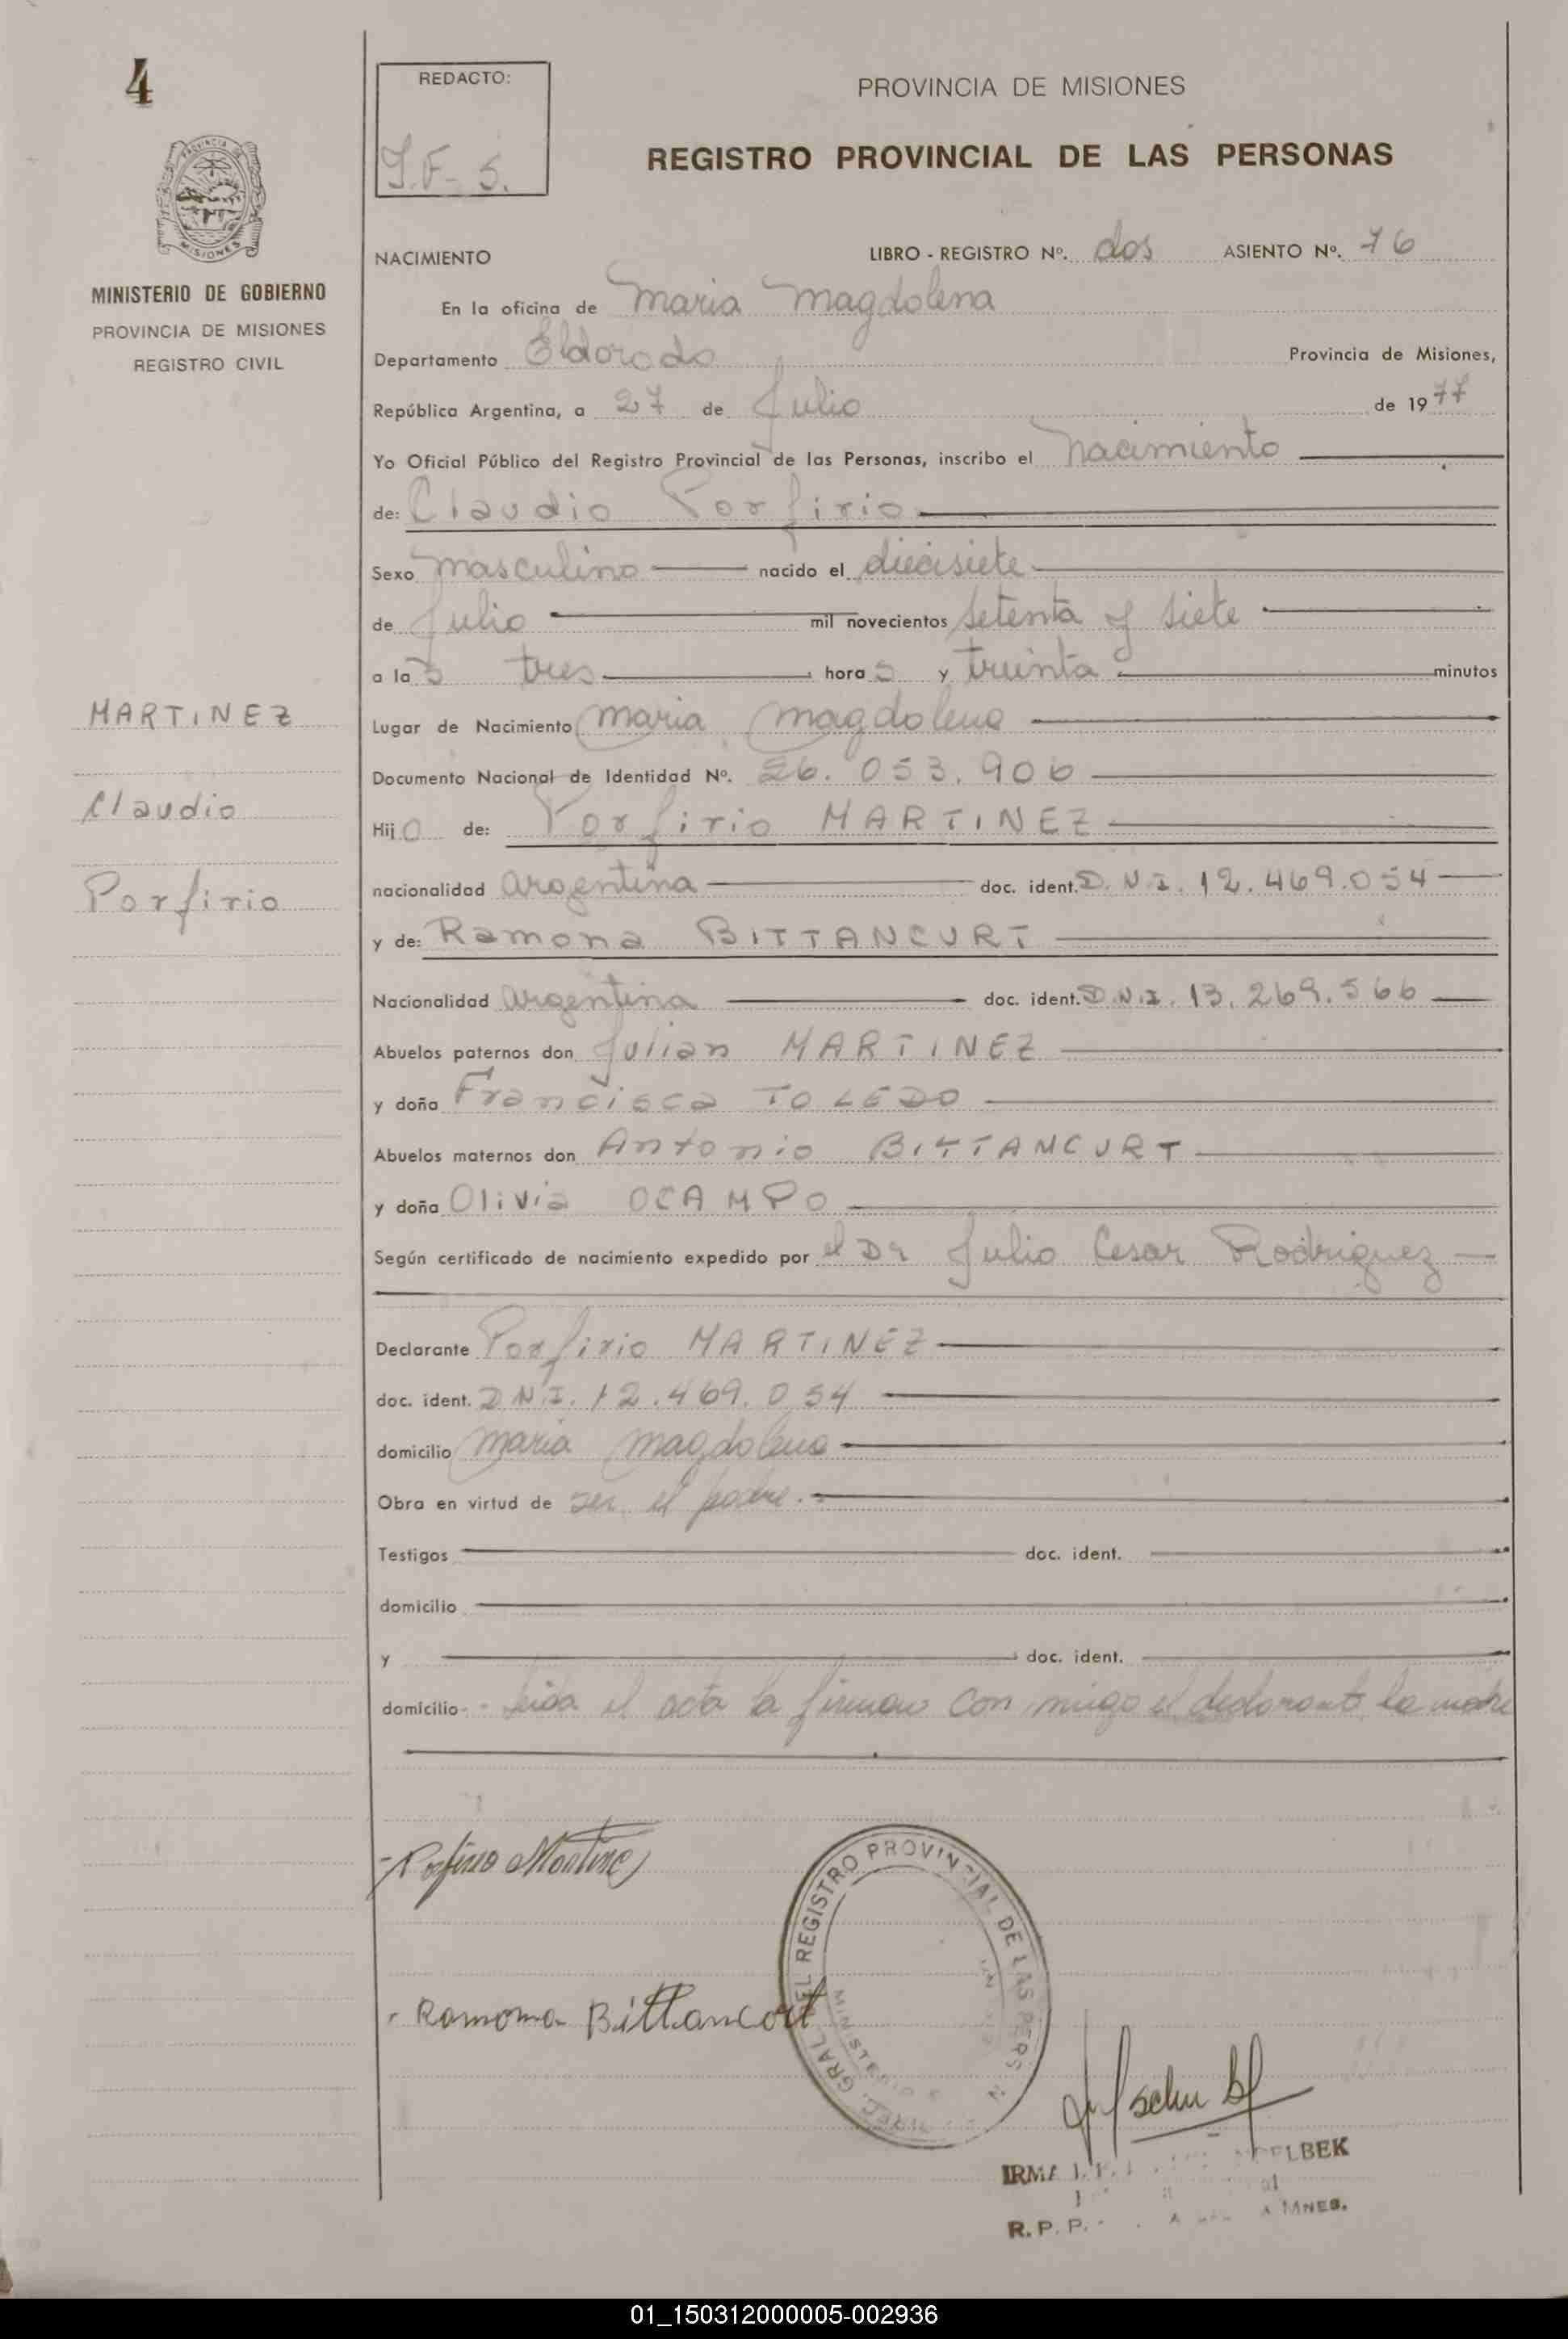 4
REDACTO:
PROVINCIA DE MISIONES
REGISTRO PROVINCIAL DE LAS PERSONAS
MISIONES
MINISTERIO DE GOBIERNO
PROVINCIA DE MISIONES
REGISTRO CIVIL
NACIMIENTO LIBRO - REGISTRO Nº. dos ASIENTO Nº. 76
En la oficina de Maria Magdalena
Departamento Eldorado Provincia de Misiones,
República Argentina, a 27 de Julio de 1977
Yo Oficial Público del Registro Provincial de las Personas, inscribo el Nacimiento
de: Claudio Porfirio
Sexo masculino nacido el diecisiete
de Julio mil novecientos setenta y siete
a las tres horas y treinta minutos
MARTINEZ
Claudio
Porfirio
Lugar de Nacimiento Maria Magdalena
Documento Nacional de Identidad Nº. 26.053.906
Hijo de: Porfirio MARTINEZ
nacionalidad argentina doc. ident. D.N.I. 12.469.054
y de: Ramona BITTANCURT
Nacionalidad argentina doc. ident. D.N.I. 13.269.566
Abuelos paternos don Julian MARTINEZ
y doña Francisca TOLEDO
Abuelos maternos don Antonio BITTANCURT
y doña Olivia OCAMPO
Según certificado de nacimiento expedido por el Dr Julio Cesar Rodriguez
Declarante Porfirio MARTINEZ
doc. ident. D.N.I. 12.469.054
domicilio Maria Magdalena
Obra en virtud de ser el padre.
Testigos doc. ident.
domicilio
y doc. ident.
domicilio - Leida el acta la firman con migo el declarante la madre
Porfirio Martinez
Ramona Bittancort
REGISTRO PROVINCIAL DE LAS PERS
MINISTERIO
IRMA
R.P.P. MNES.
01_150312000005-002936